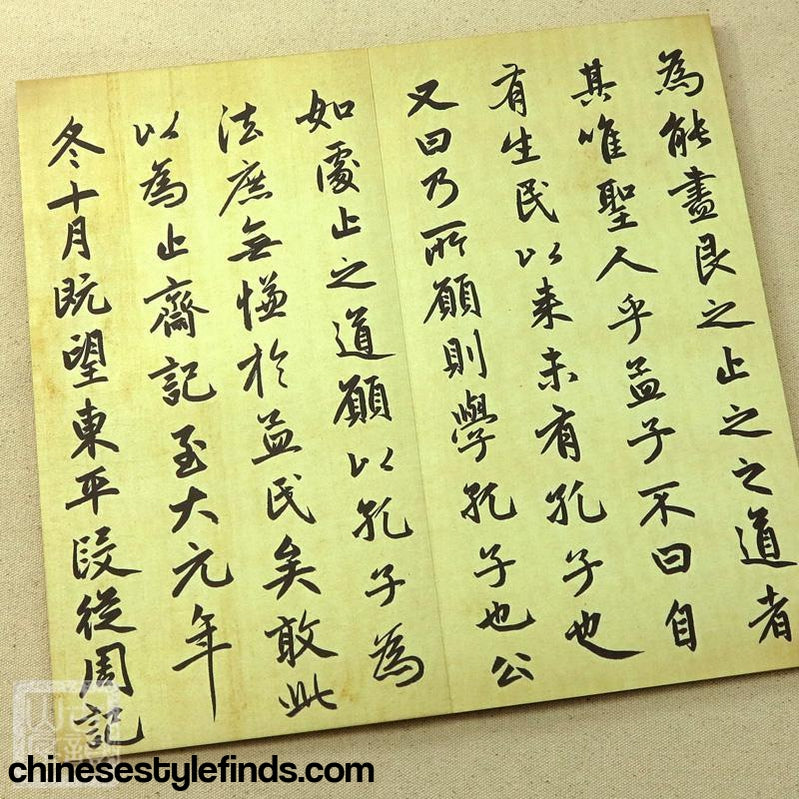 為能盡艮之止之之道者
其唯聖人乎孟子不曰自
有生民以来未有孔子也
又曰乃所願則學孔子也公
如處止之道願以孔子為
法庶無慊於益民矣敢此
以為止齋記至大元年
冬十月既望東平段從周記
chinesestylefinds.com